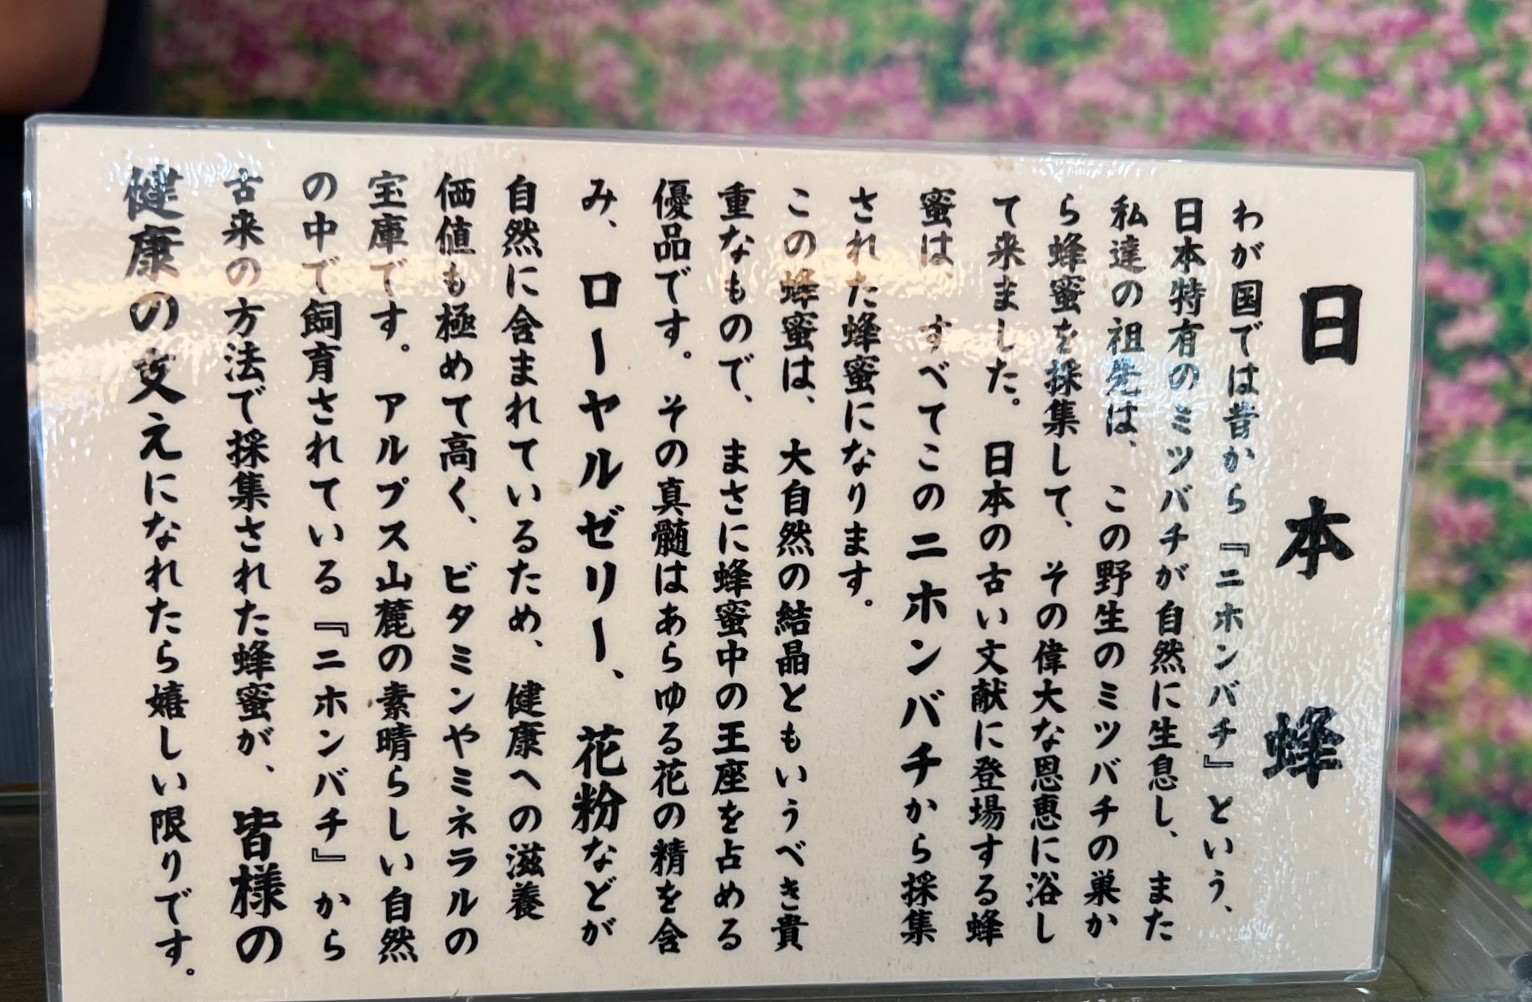 日本蜂
わが国では昔から『ニホンバチ』という、
日本特有のミツバチが自然に生息し、また
私達の祖先は、この野生のミツバチの巣か
ら蜂蜜を採集して、その偉大な恩恵に浴し
て来ました。日本の古い文献に登場する蜂
蜜は、すべてこのニホンバチから採集
された蜂蜜になります。
この蜂蜜は、大自然の結晶ともいうべき貴
重なもので、まさに蜂蜜中の王座を占める
優品です。その真髄はあらゆる花の精を含
み、ローヤルゼリー、花粉などが
自然に含まれているため、健康への滋養
価値も極めて高く、ビタミンやミネラルの
宝庫です。アルプス山麓の素晴らしい自然
の中で飼育されている『ニホンバチ』から
古来の方法で採集された蜂蜜が、皆様の
健康の支えになれたら嬉しい限りです。